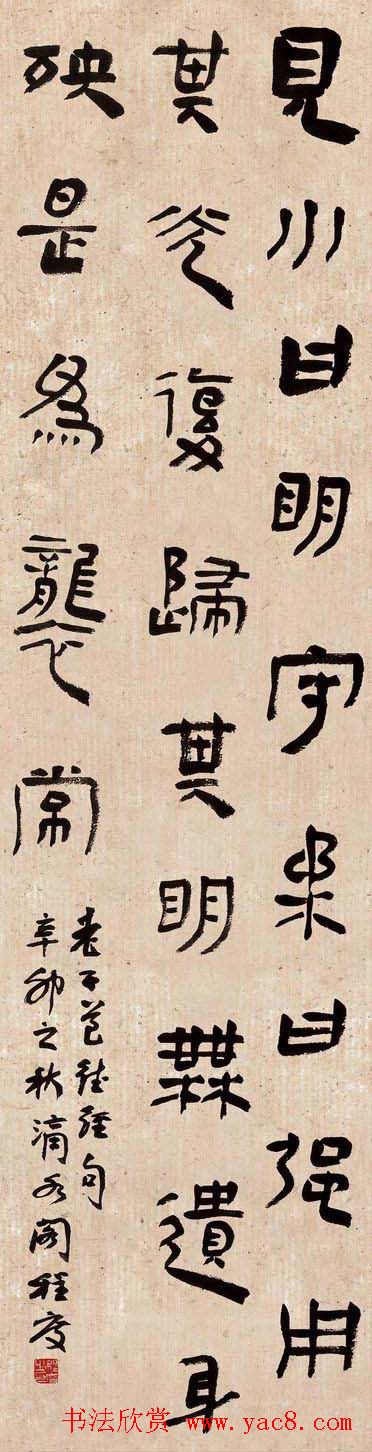 見小曰明守柔曰强用
其光復歸其明無遺身
殃是為襲常
老子道德經句
辛卯之秋滴水閣程度
书法欣赏 www.yac8.com